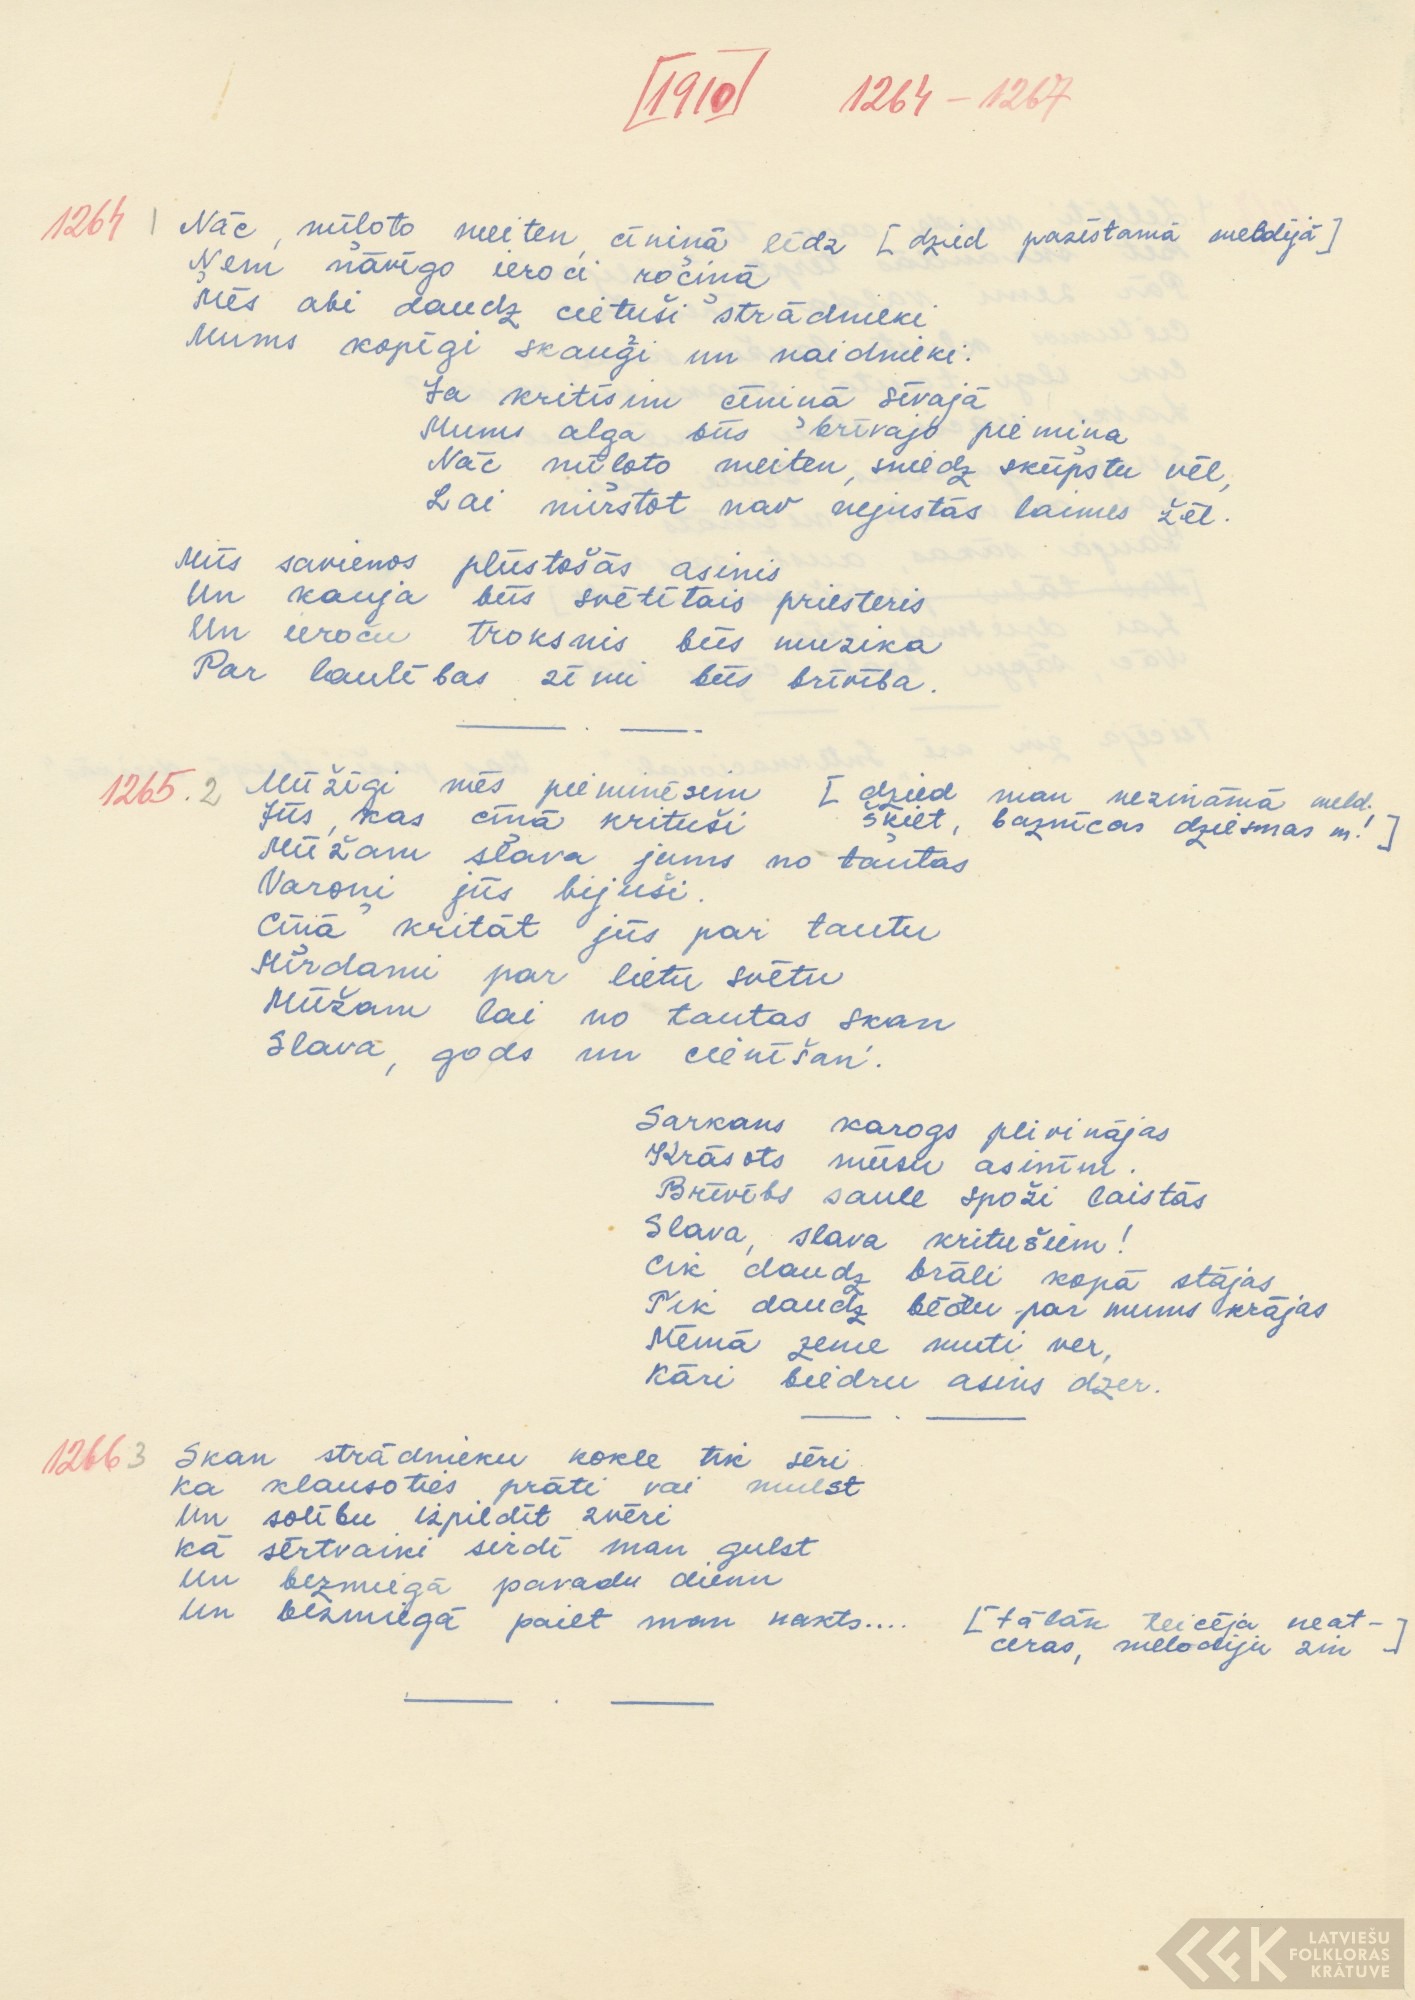 [1910] 1264 – 1267
1264 1 Nāc, mīļoto meiten, cīniņā līdz [dzied pazīstamā meldijā]
Ņem nāvīgo ieroci rociņā
Mēs abi daudz cietuši strādnieki
Mums kopīgi skauģi un naidnieki.
Ja kritīsim cīniņā sīvajā
Mums alga būs brīvajo piemiņa
Nāc mīļoto meiten, sniedz skūpstu vēl,
Lai mirstot nav nejustās laimes žēl.
Mūs savienos plūstošās asinis
Un kauja būs svētītais priesteris
Un ieroču troksnis būs muzika
Par laulības zīmi būs brīvība.
1265. 2 Mūžīgi mēs pieminēsim [dzied man nezināmā meld.
Jūs, kas cīņā krituši šķiet, baznīcas dziesmas m.!]
Mūžam slava jums no tautas
Varoņi jūs bijuši.
Cīņā kritāt jūs par tautu
Mirdami par lietu svētu
Mūžam lai no tautas skan
Slava, gods un cienīšan'.
Sarkans karogs plivinājas
Krāsots mūsu asinīm.
Brīvībs saule spoži laistās
Slava, slava kritušiem!
Cik daudz brāļi kopā stājas
Tik daudz bēdu par mums krājas
Mēmā zeme muti ver,
Kāri biedru asins dzer.
1266 3 Skan strādnieku kokle tik sēri
ka klausoties prāti vai mulst
Un solību izpildīt zvēri
Kā sērtvaiki sirdī man gulst
Un bezmiegā pavadu dienu
Un bezmiegā paiet man nakts.... [tālāk teicēja neat-
ceras, melodiju zin]
LATVIEŠU
FOLKLORAS
KRĀTUVE